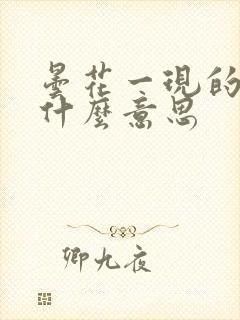 曇花一現的
什麼意思
卿九夜